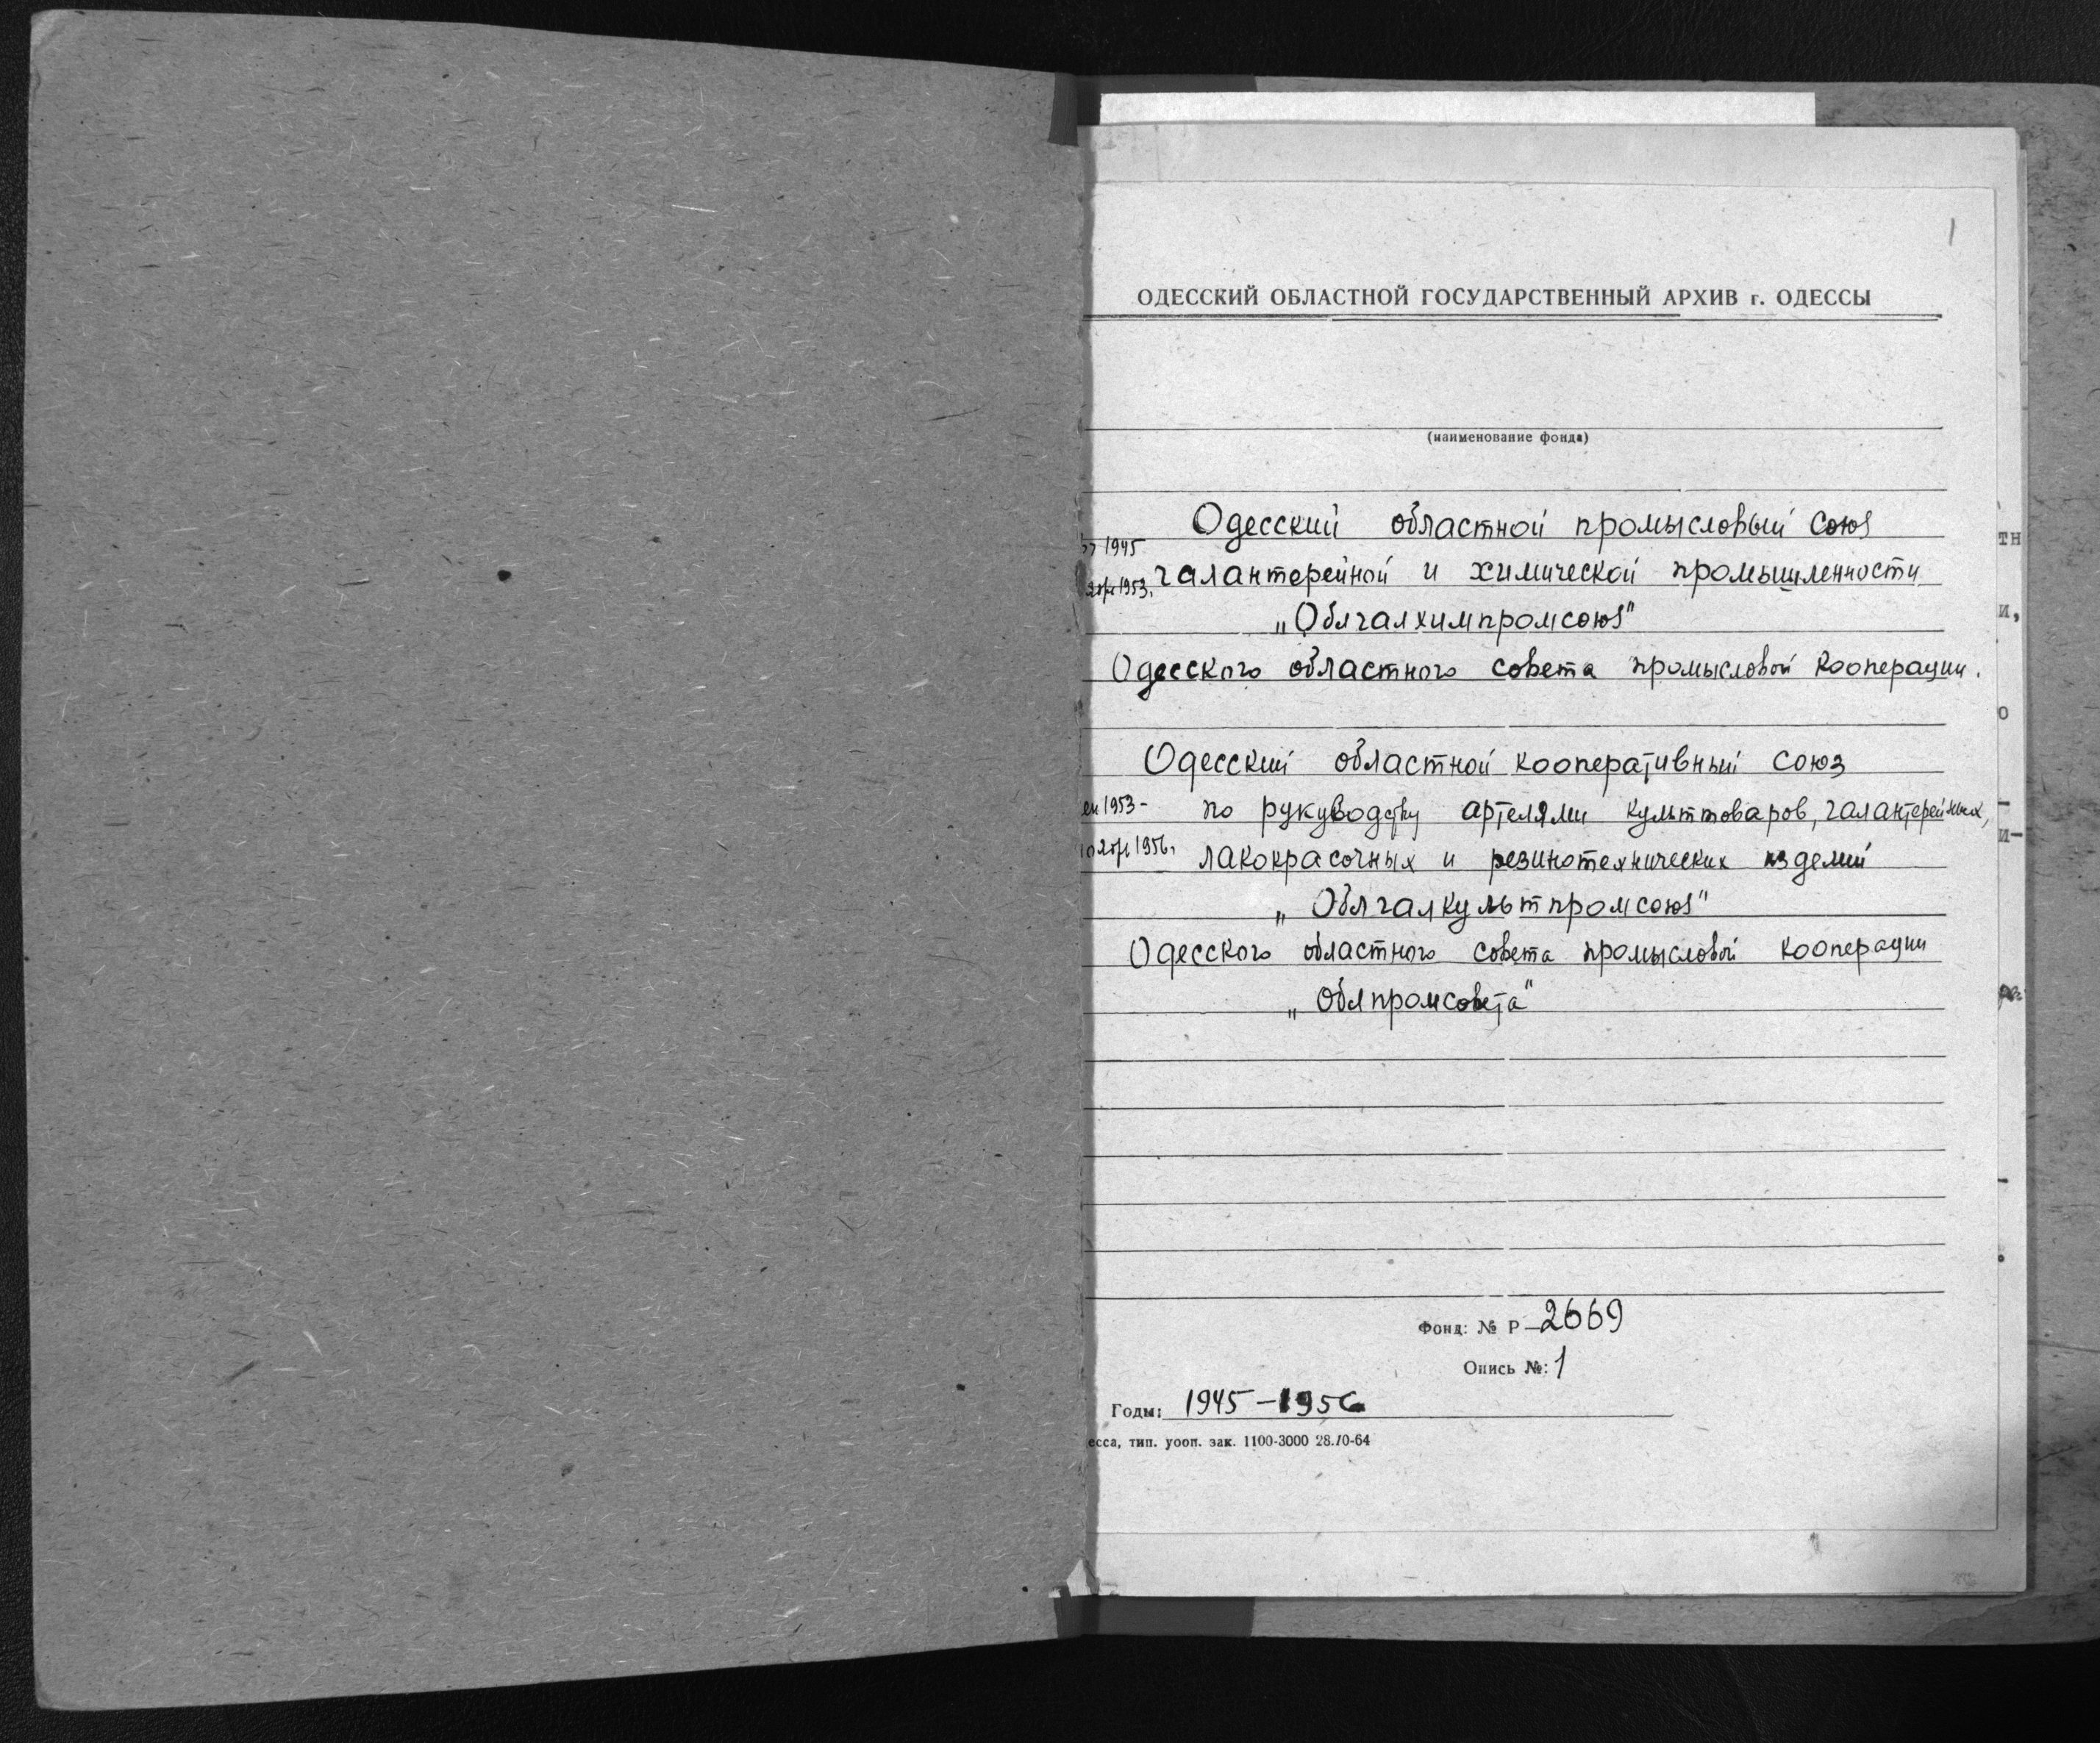 1
ОДЕССКИЙ ОБЛАСТНОЙ ГОСУДАРСТВЕННЫЙ АРХИВ г. ОДЕССЫ
(наименование фонда)
Одесский областной промысловый союз
1945
1953. галантерейной и химической промышленности
„Облгалхимпромсоюз"
Одесского областного совета промысловой кооперации.
Одесский областной кооперативный союз
1953- по рукуводству артелями культтоваров, галантерейных,
1956г лакокрасочных и резинотехнических изделий
„Облгалкультпромсоюз"
Одесского областного совета промысловой кооперации
„Облпромсовета"
Фонд: № Р-2669
Опись №: 1
Годы: 1945-1956
есса, тип. уооп. зак. 1100-3000 28.10-64
тн
и,
о
-
и-
-